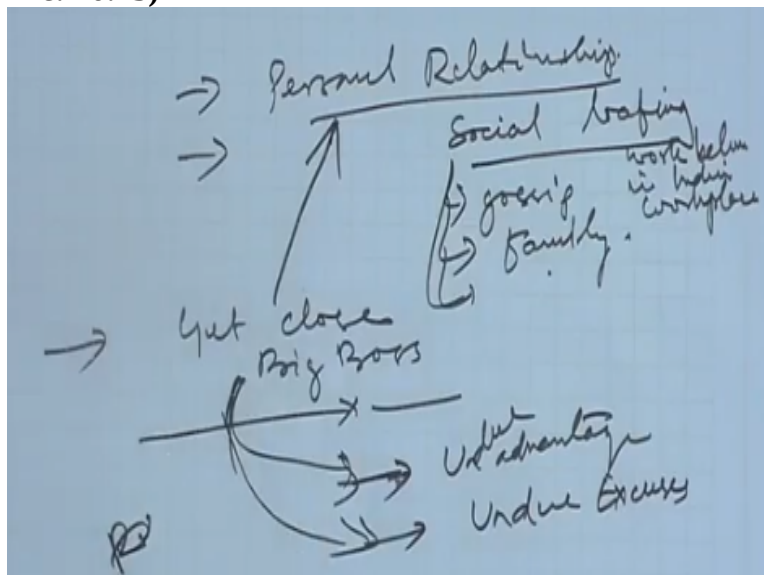 → Personal Relationship
→ Social loafing
work behav in Indian workplace
→ gossip
→ Family.
→ Get close
Big Boss
Undue advantage
Undue Excuses